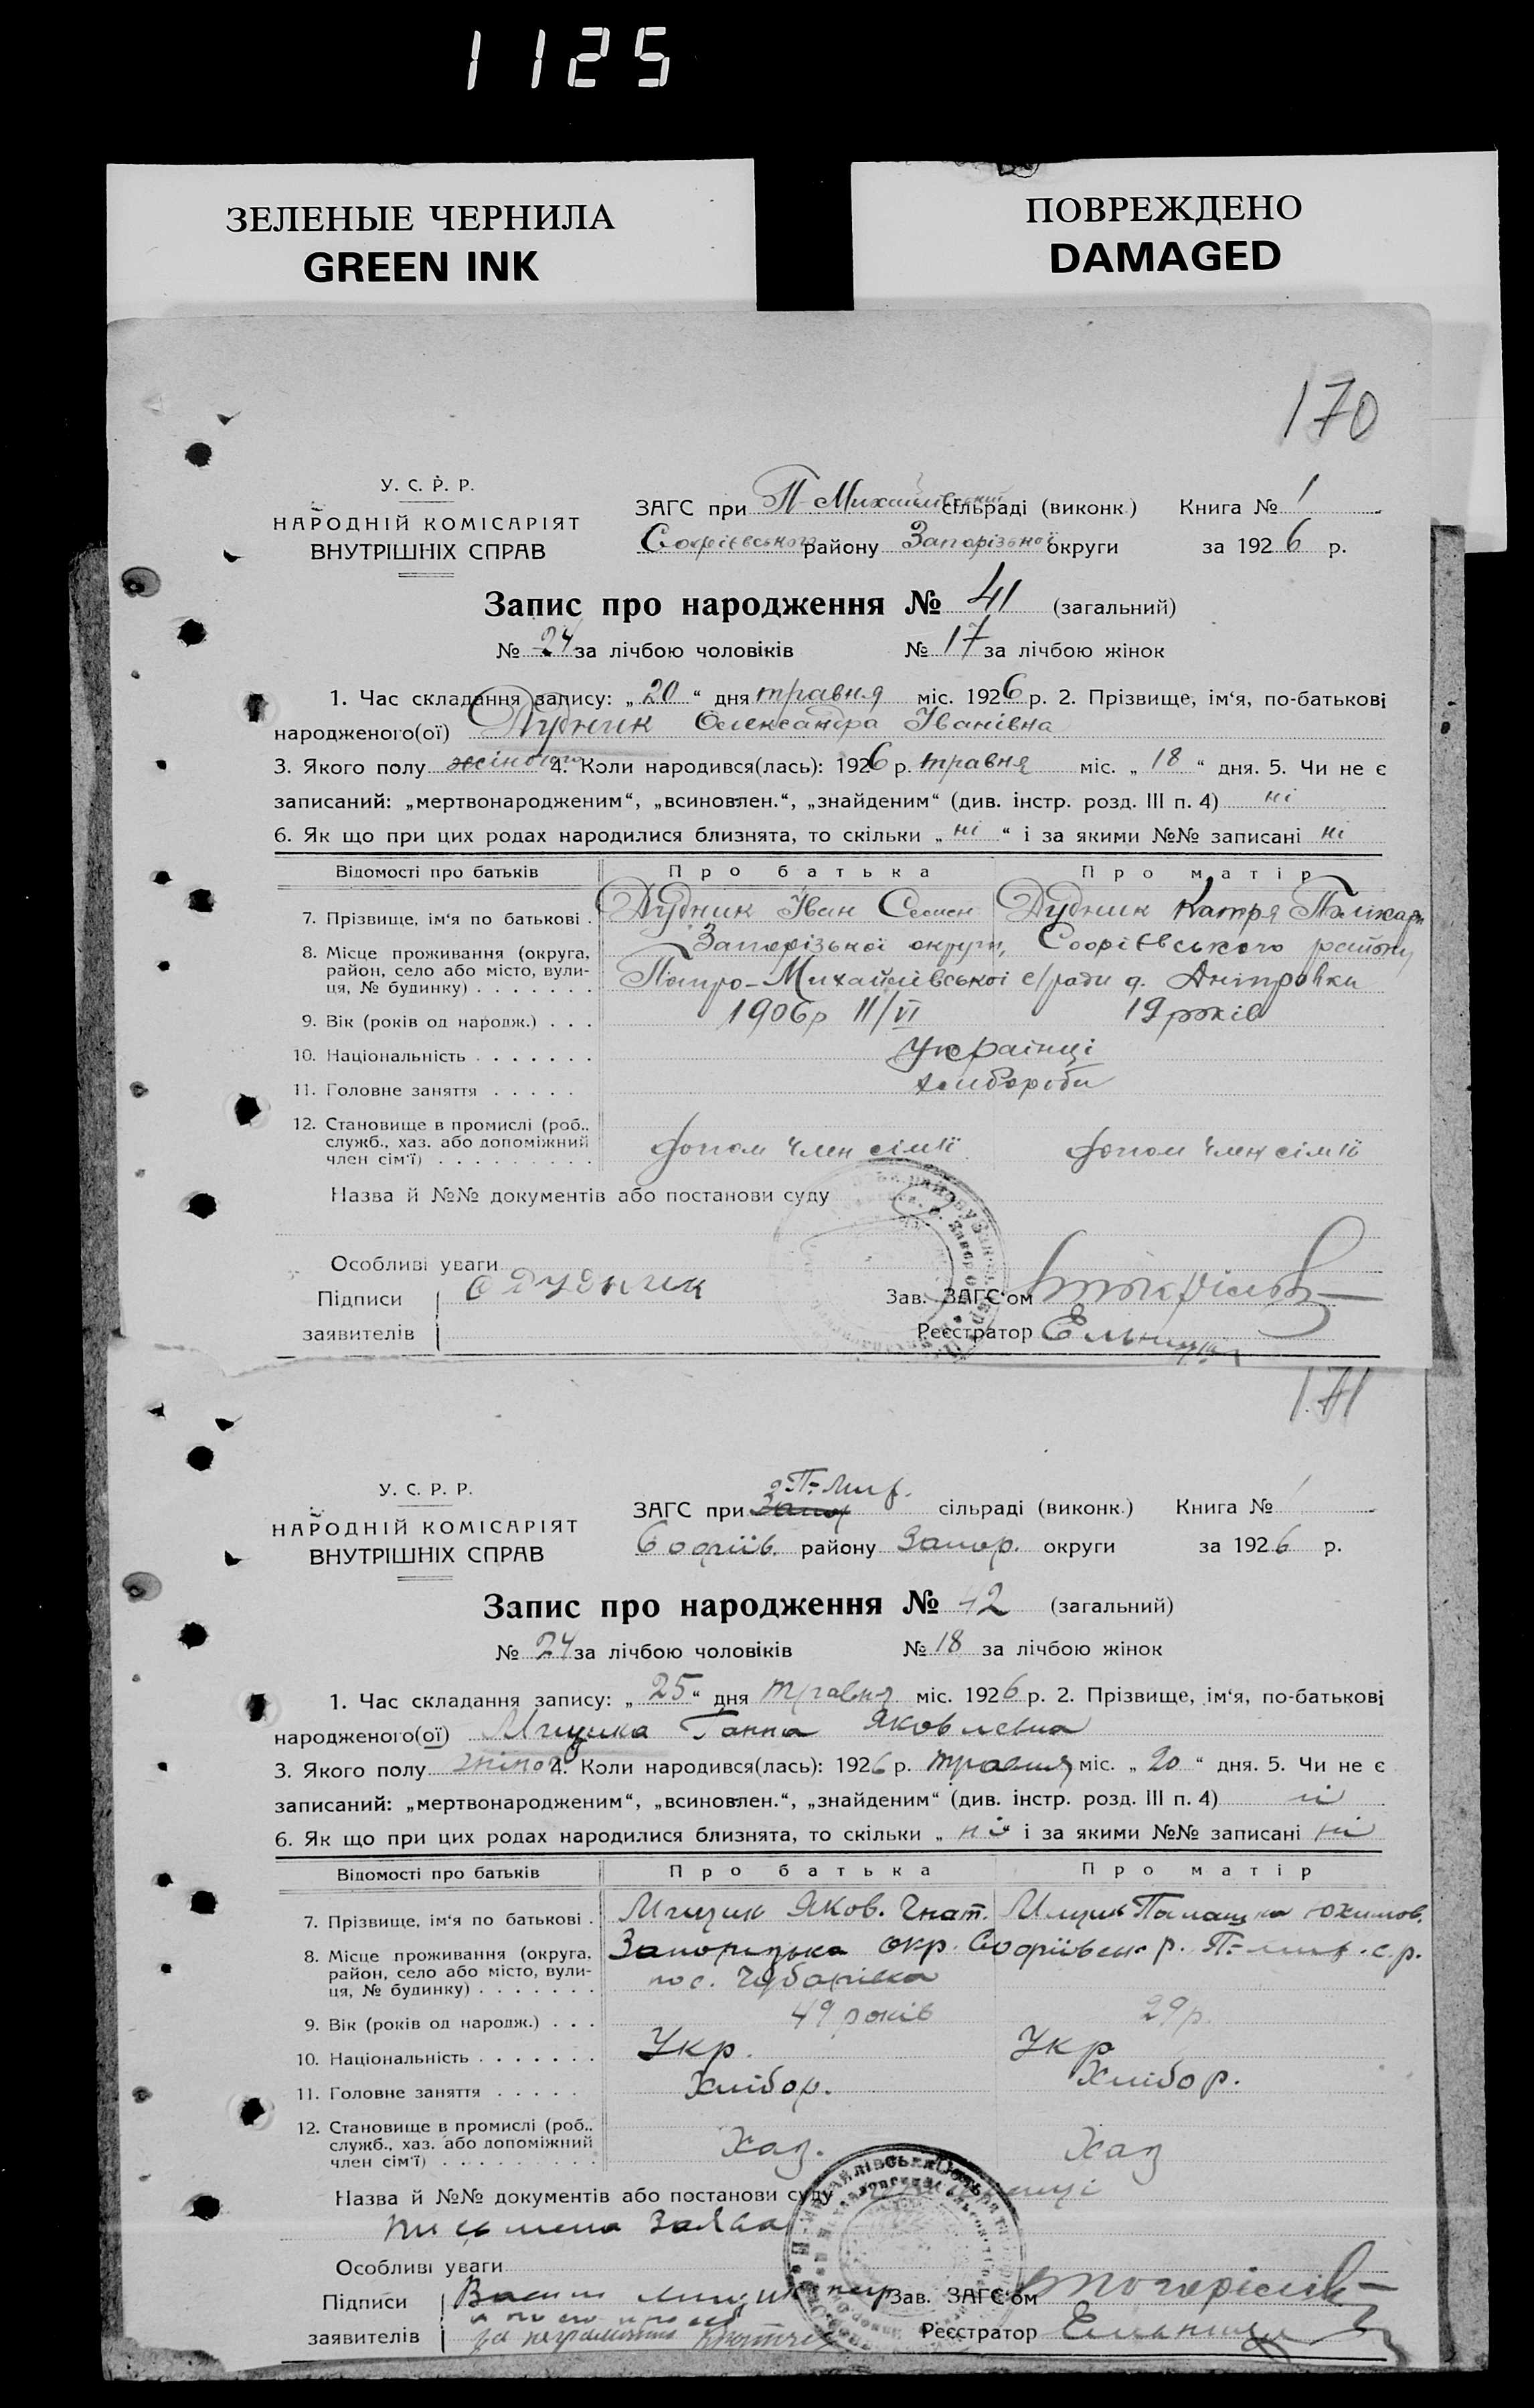 1125
ЗЕЛЕНЫЕ ЧЕРНИЛА
GREEN INK
ПОВРЕЖДЕНО
DAMAGED
170
У. С. Р. Р.
НАРОДНІЙ КОМІСАРІЯТ
ВНУТРІШНІХ СПРАВ
ЗАГС при П-Михайлівській сільраді (виконк.) Книга № 1
Софієвського району Запорізької округи за 1926 р.
Запис про народження № 41 (загальний)
№ 24 за лічбою чоловіків № 17 за лічбою жінок
1. Час складання запису: „20“ дня травня міс. 1926 р. 2. Прізвище, ім‘я, по-батькові
народженого(ої) Дудник Олександра Іванівна
3. Якого полу жіночого 4. Коли народився(лась): 1926 р. травня міс. „18“ дня. 5. Чи не є
записаний: „мертвонародженим“, „всиновлен.“, „знайденим“ (див. інстр. розд. III п. 4) ні
6. Як що при цих родах народилися близнята, то скільки „ні“ і за якими №№ записані ні
Відомості про батьків Про батька Про матір
7. Прізвище, ім‘я по батькові . Дудник Іван Семен Дудник Катря
8. Місце проживання (округа, район, село або місто, вулиця, № будинку) Запорізької округи, Софієвського району
Петро-Михайлівської с/ради д. Дніпровки
9. Вік (років од народж.) . . . 1906 р 11/VI 19 років
10. Національність . . . . . . . Українці
11. Головне заняття . . . . . хлибороби
12. Становище в промислі (роб.. служб., хаз. або допоміжний член сім‘ї) допом член сімʼї допом член сімʼї
Назва й №№ документів або постанови суду
Особливі уваги
Підписи Дудник Зав. ЗАГС‘ом
заявителів Реєстратор
171
У. С. Р. Р.
НАРОДНІЙ КОМІСАРІЯТ
ВНУТРІШНІХ СПРАВ
ЗАГС при П-Мих. сільраді (виконк.) Книга № 1
Софіїв. району Запор. округи за 1926 р.
Запис про народження № 42 (загальний)
№ 24 за лічбою чоловіків № 18 за лічбою жінок
1. Час складання запису: „25“ дня травня міс. 1926 р. 2. Прізвище, ім‘я, по-батькові
народженого(ої) Мицика Ганна Яковлевна
3. Якого полу жіноч 4. Коли народився(лась): 1926 р. травня міс. „20“ дня. 5. Чи не є
записаний: „мертвонародженим“, „всиновлен.“, „знайденим“ (див. інстр. розд. III п. 4) ні
6. Як що при цих родах народилися близнята, то скільки „ні“ і за якими №№ записані ні
Відомості про батьків Про батька Про матір
7. Прізвище, ім‘я по батькові . Мицик Яков. Гнат. Мицик Палашка Юхимов.
8. Місце проживання (округа, район, село або місто, вулиця, № будинку) Запоризька окр. Софіївськ. р. П-мих. с.р.
пос. Чубарівка
9. Вік (років од народж.) . . . 49 років 29 р.
10. Національність . . . . . . . Укр. Укр
11. Головне заняття . . . . . Хлібор. Хлібор.
12. Становище в промислі (роб.. служб., хаз. або допоміжний член сім‘ї) Хаз. Хаз
Назва й №№ документів або постанови суду
письмена Заява
Особливі уваги
Підписи Зав. ЗАГС‘ом
заявителів Реєстратор